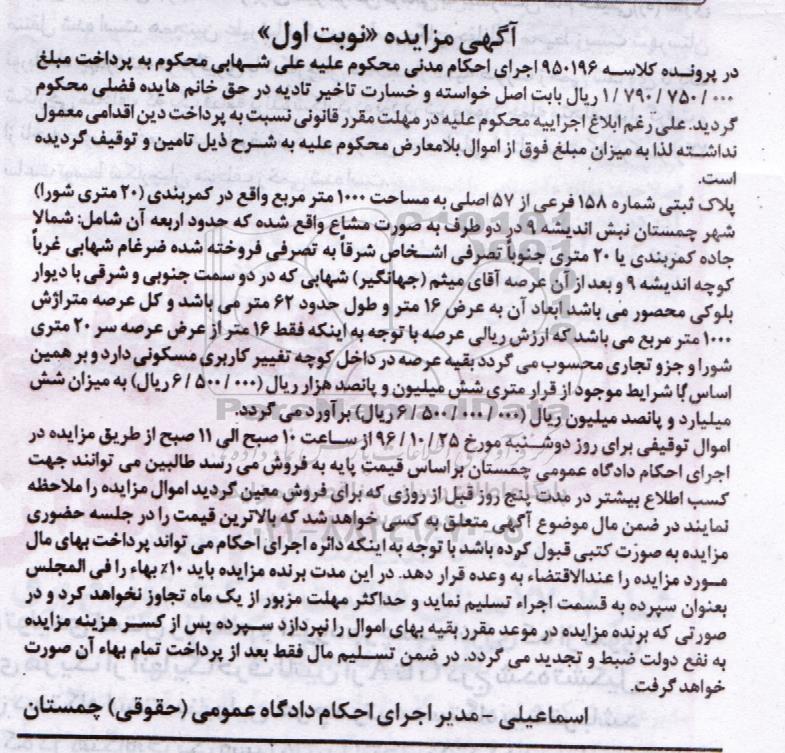 آگهی مزایده «نوبت اول»
در پرونده کلاسه ۹۵۰۱۹۶ اجرای احکام مدنی محکوم علیه علی شهابی محکوم به پرداخت مبلغ
۱/۷۹۰/۷۵۰/۰۰۰ ریال بابت اصل خواسته و خسارت تاخیر تادیه در حق خانم هایده فضلی محکوم
گردید. علی رغم ابلاغ اجراییه محکوم علیه در مهلت مقرر قانونی نسبت به پرداخت دین اقدامی معمول
نداشته لذا به میزان مبلغ فوق از اموال بلامعارض محکوم علیه به شرح ذیل تامین و توقیف گردیده
است.
پلاک ثبتی شماره ۱۵۸ فرعی از ۵۷ اصلی به مساحت ۱۰۰۰ متر مربع واقع در کمربندی (۲۰ متری شورا)
شهر چمستان نبش اندیشه ۹ در دو طرف به صورت مشاع واقع شده که حدود اربعه آن شامل: شمالا
جاده کمربندی یا ۲۰ متری جنوباً تصرفی اشخاص شرقاً به تصرفی فروخته شده ضرغام شهابی غرباً
کوچه اندیشه ۹ و بعد از آن عرصه آقای میثم (جهانگیر) شهابی که در دو سمت جنوبی و شرقی با دیوار
بلوکی محصور می باشد ابعاد آن به عرض ۱۶ متر و طول حدود ۶۲ متر می باشد و کل عرصه متراژش
۱۰۰۰ متر مربع می باشد که ارزش ریالی عرصه با توجه به اینکه فقط ۱۶ متر از عرض عرصه سر ۲۰ متری
شورا و جزو تجاری محسوب می گردد بقیه عرصه در داخل کوچه تغییر کاربری مسکونی دارد و بر همین
اساس با شرایط موجود از قرار متری شش میلیون و پانصد هزار ریال (۶/۵۰۰/۰۰۰ ریال) به میزان شش
میلیارد و پانصد میلیون ریال (۶/۵۰۰/۰۰۰/۰۰۰ ریال) برآورد می گردد.
اموال توقیفی برای روز دوشنبه مورخ ۹۶/۱۰/۲۵ از ساعت ۱۰ صبح الی ۱۱ صبح از طریق مزایده در
اجرای احکام دادگاه عمومی چمستان براساس قیمت پایه به فروش می رسد طالبین می توانند جهت
کسب اطلاع بیشتر در مدت پنج روز قبل از روزی که برای فروش معین گردید اموال مزایده را ملاحظه
نمایند در ضمن مال موضوع آگهی متعلق به کسی خواهد شد که بالاترین قیمت را در جلسه حضوری
مزایده به صورت کتبی قبول کرده باشد با توجه به اینکه دائره اجرای احکام می تواند پرداخت بهای مال
مورد مزایده را عندالاقتضاء به وعده قرار دهد. در این مدت برنده مزایده باید ۱۰٪ بهاء را فی المجلس
بعنوان سپرده به قسمت اجراء تسلیم نماید و حداکثر مهلت مزبور از یک ماه تجاوز نخواهد کرد و در
صورتی که برنده مزایده در موعد مقرر بقیه بهای اموال را نپردازد سپرده پس از کسر هزینه مزایده
به نفع دولت ضبط و تجدید می گردد. در ضمن تسلیم مال فقط بعد از پرداخت تمام بهاء آن صورت
خواهد گرفت.
اسماعیلی - مدیر اجرای احکام دادگاه عمومی (حقوقی) چمستان